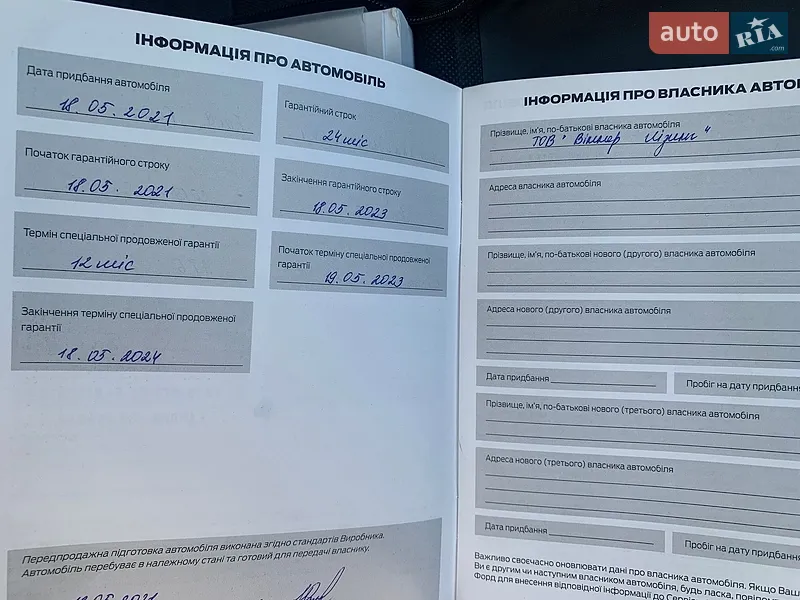 auto RIA .com
ІНФОРМАЦІЯ ПРО АВТОМОБІЛЬ
Дата придбання автомобіля
18.05.2021
Гарантійний строк
24 міс
Початок гарантійного строку
18.05.2021
Закінчення гарантійного строку
18.05.2023
Термін спеціальної продовженої гарантії
12 міс
Початок терміну спеціальної продовженої
гарантії
19.05.2023
Закінчення терміну спеціальної продовженої
гарантії
18.05.2024
Передпродажна підготовка автомобіля виконана згідно стандартів Виробника.
Автомобіль перебуває в належному стані та готовий для передачі власнику.
ІНФОРМАЦІЯ ПРО ВЛАСНИКА АВТО
Прізвище, ім'я, по-батькові власника автомобіля
ТОВ "
Адреса власника автомобіля
Прізвище, ім'я, по-батькові нового (другого) власника автомобіля
Адреса нового (другого) власника автомобіля
Дата придбання
Пробіг на дату придбання
Прізвище, ім'я, по-батькові нового (третього) власника автомобіля
Адреса нового (третього) власника автомобіля
Дата придбання
Пробіг на дату придбанн
Важливо своєчасно оновлювати дані про власника автомобіля. Якщо Ваш
Ви є другим чи наступним власником автомобіля, будь ласка, повідом
Форд для внесення відповідної інформації до Серві